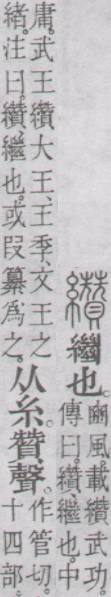 纘繼也。豳風。載纘武功。傳曰。纘、繼也。中
庸。武王纘大王、王季、文王之
緒。注曰。纘、繼也。或叚纂爲之。从糸。贊聲。作管切。十四部。